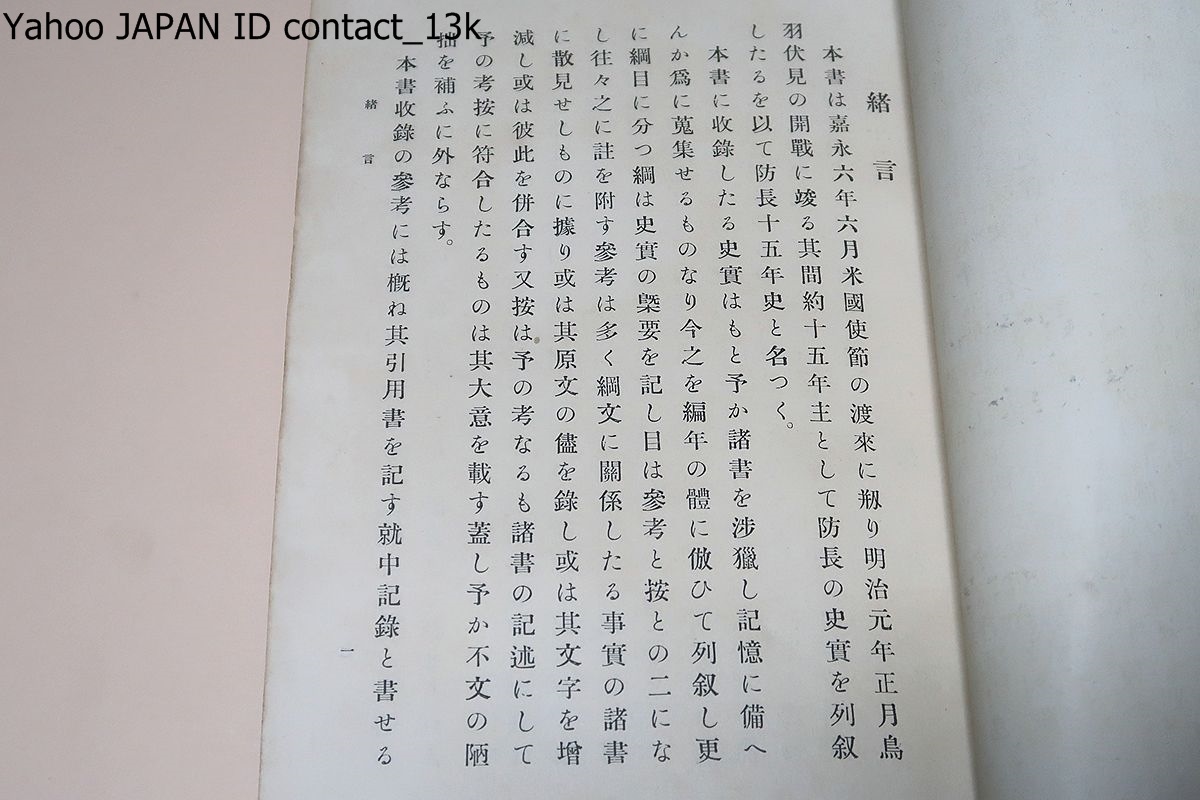 Yahoo JAPAN ID contact_13k
緒言
本書は嘉永六年六月米國使節の渡來に剏り明治元年正月鳥
羽伏見の開戰に竣る其間約十五年主として防長の史實を列叙
したるを以て防長十五年史と名つく。
本書に收錄したる史實はもと予か諸書を涉獵し記憶に備へ
んか爲に蒐集せるものなり今之を編年の體に倣ひて列叙し更
に綱目に分つ綱は史實の槩要を記し目は參考と按との二にな
し往々之に註を附す參考は多く綱文に關係したる事實の諸書
に散見せしものに據り或は其原文の儘を錄し或は其文字を增
減し或は彼此を併合す又按は予の考なるも諸書の記述にして
予の考按に符合したるものは其大意を載す蓋し予か不文の陋
拙を補ふに外ならす。
本書收錄の參考には槪ね其引用書を記す就中記錄と書せる
緒言
一